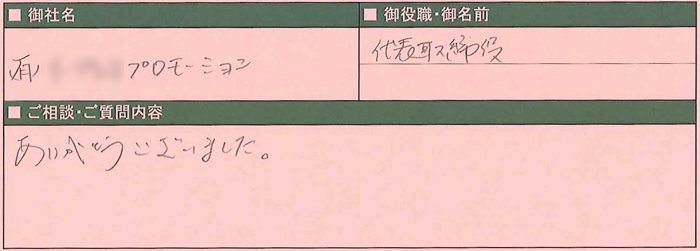 ■ 御社名
■ 御役職・御名前
プロモーション
代表取締役
■ ご相談・ご質問内容
ありがとうございました。